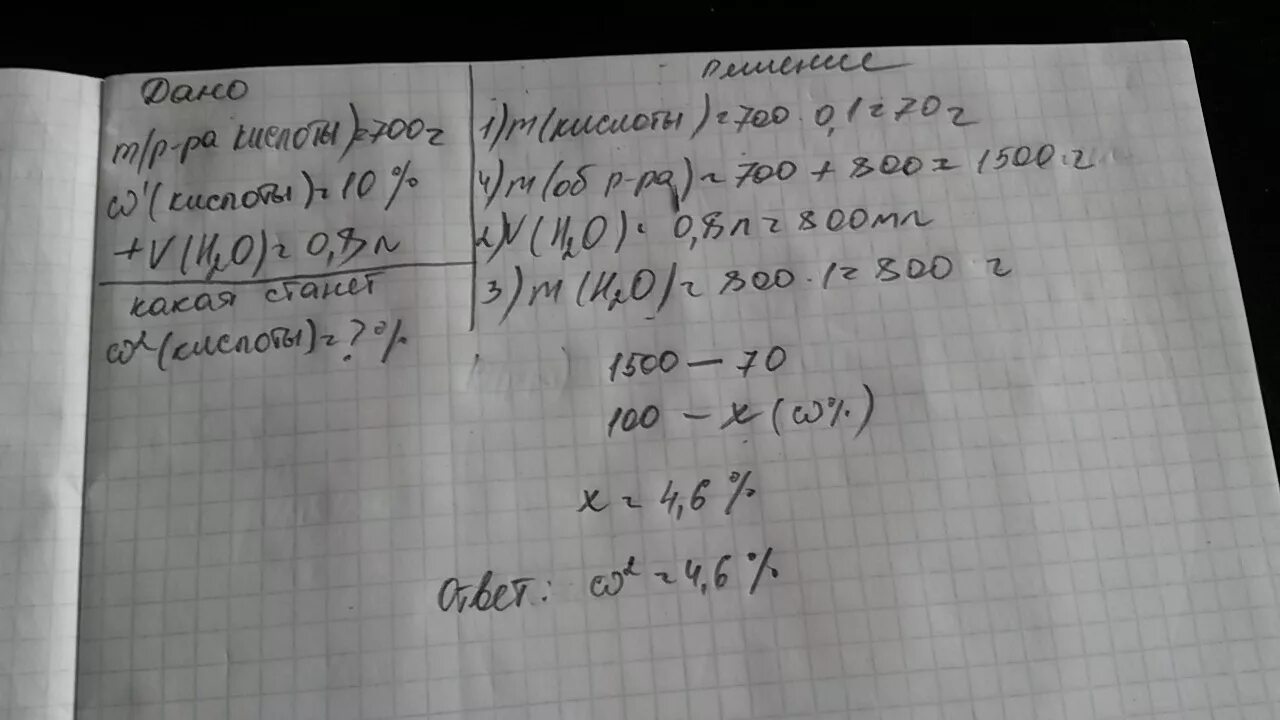 Дано
m(р-ра кислоты)=700г
ω¹(кислоты)=10%
+V(H₂O)=0,8л
какая станет
ω²(кислоты)=?%
решение
1)m(кислоты)=700·0,1=70г
4)m(об р-ра)=700+800=1500г
2)V(H₂O)=0,8л=800мл
3)m(H₂O)=800·1=800 г
1500 — 70
100 — x(ω%)
x=4,6%
Ответ: ω²=4,6%